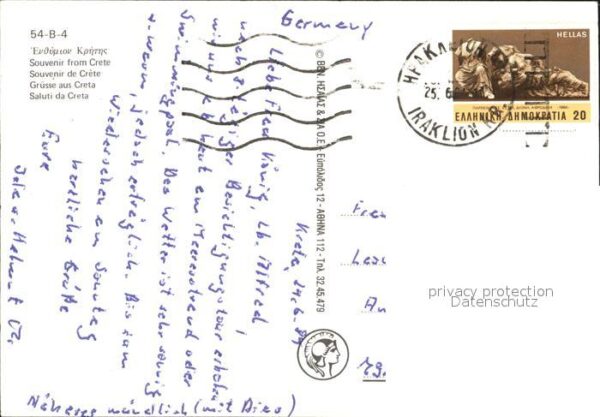 54-B-4
Ἐνθύμιον Κρήτης
Souvenir from Crete
Souvenir de Crète
Grüsse aus Creta
Saluti da Creta
Germany
HELLAS
ΕΛΛΗΝΙΚΗ ΔΗΜΟΚΡΑΤΙΑ 20
ΗΡΑΚΛΕΙΟΝ
25. 6.
IRAKLION
Kreta, 24.6.84
Liebe Frau König, lb. Alfred!
nach 8-tägiger Besichtigungstour erholen
wir uns ab heut am Meeresstrand oder
Swimmingpool. Das Wetter ist sehr sonnig
u. warm, jedoch erträglich. Bis zum
Wiedersehen am Sonntag
herzliche Grüße
Eure
Helmut
Näheres mündlich (mit Dias)
© ΒΕΝ. ΗΣΑΪΑΣ & ΣΙΑ Ο.Ε. Εὐπόλιδος 12 - ΑΘΗΝΑ 112 - Τηλ. 32.45.479
privacy protection
Datenschutz